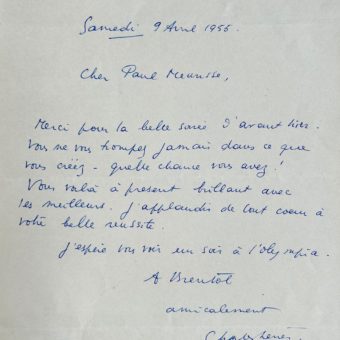 Samedi 9 Avril 1955.
Cher Paul Meurisse,
Merci pour la belle soirée d'avant hier.
Vous ne vous trompez jamais dans ce que
vous créez - quelle chance vous avez!
Vous voilà à présent brillant avec
les meilleurs. J'applaudis de tout coeur à
votre belle réussite.
J'espère vous voir un soir à l'Olympia.
A Bientôt
amicalement